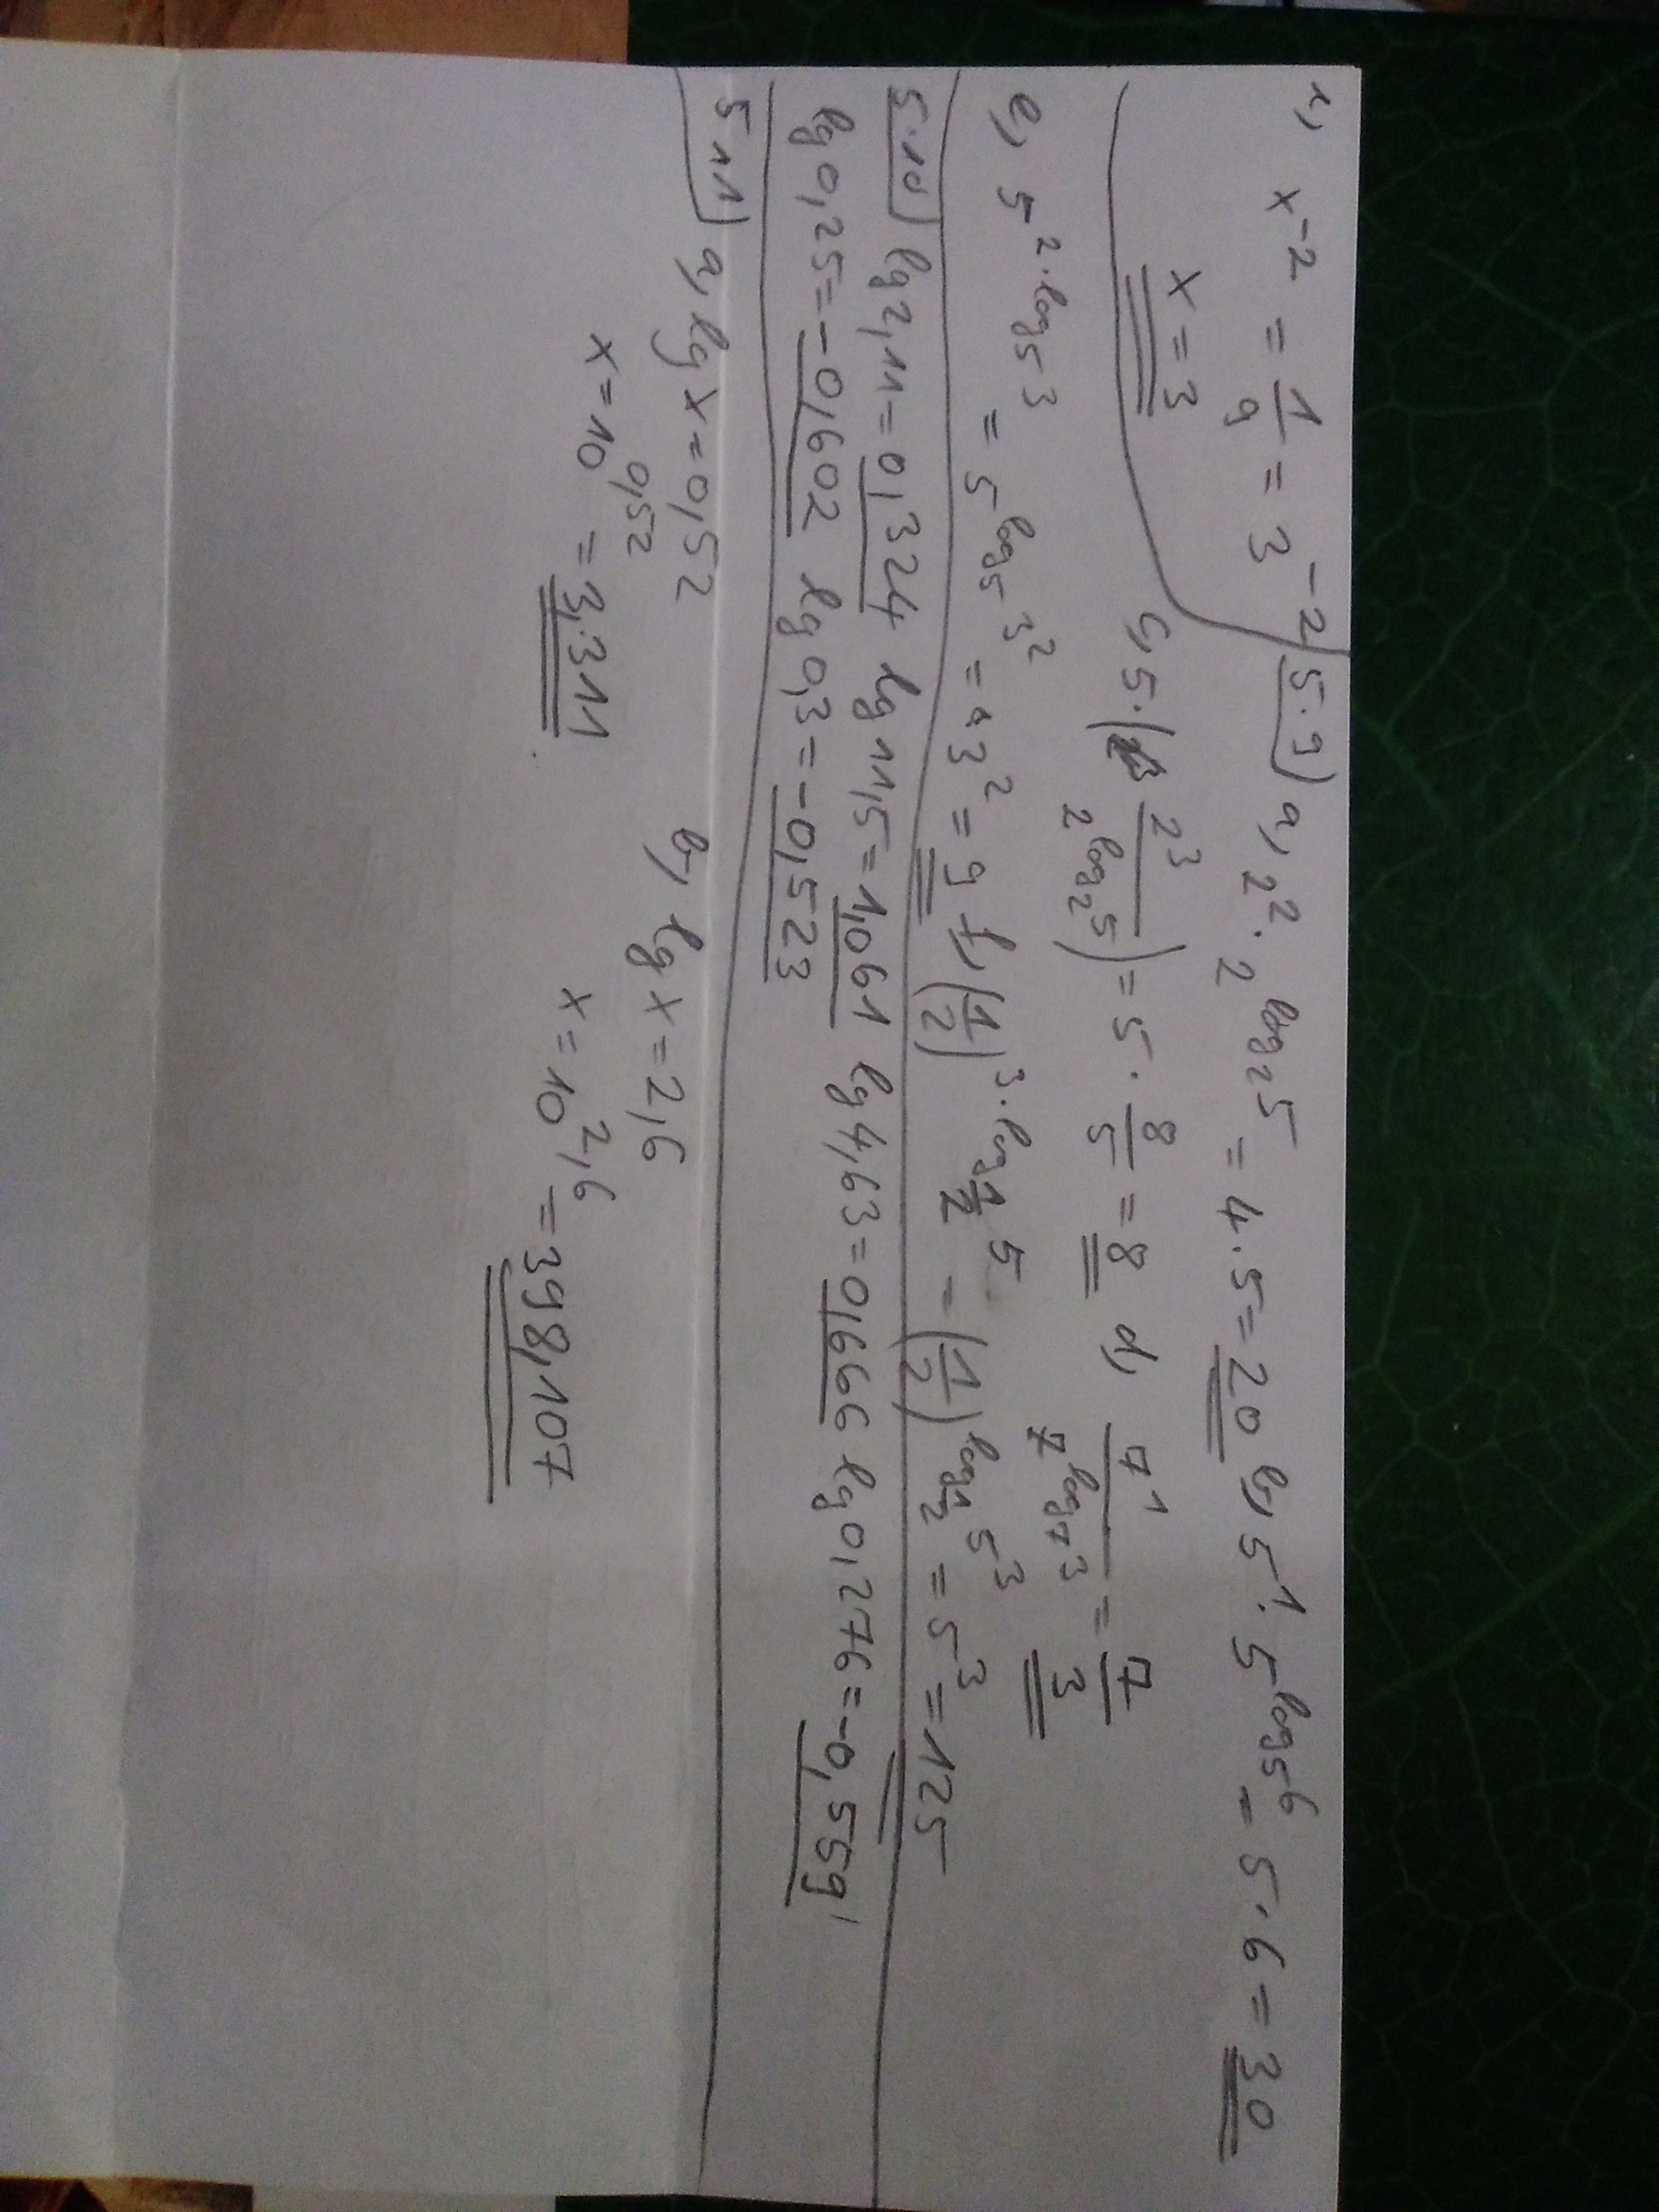 1, x⁻² = 1/9 = 3⁻²
x = 3
5.9) a, 2² · 2^log₂5 = 4 · 5 = 20 b, 5¹ · 5^log₅6 = 5 · 6 = 30
c, 5 · (2³/2^log₂5) = 5 · 8/5 = 8 d, 7¹/7^log₇3 = 7/3
e, 5^2·log₅3 = 5^log₅3² = 3² = 9 f, (1/2)^3·log_1/2 5 = (1/2)^log_1/2 5³ = 5³ = 125
5.10) lg 2,11 = 0,324 lg 11,5 = 1,061 lg 4,63 = 0,666 lg 0,276 = -0,559
lg 0,25 = -0,602 lg 0,3 = -0,523
5.11) a, lg x = 0,52 b, lg x = 2,6
x = 10^0,52 = 3,311 x = 10^2,6 = 398,107